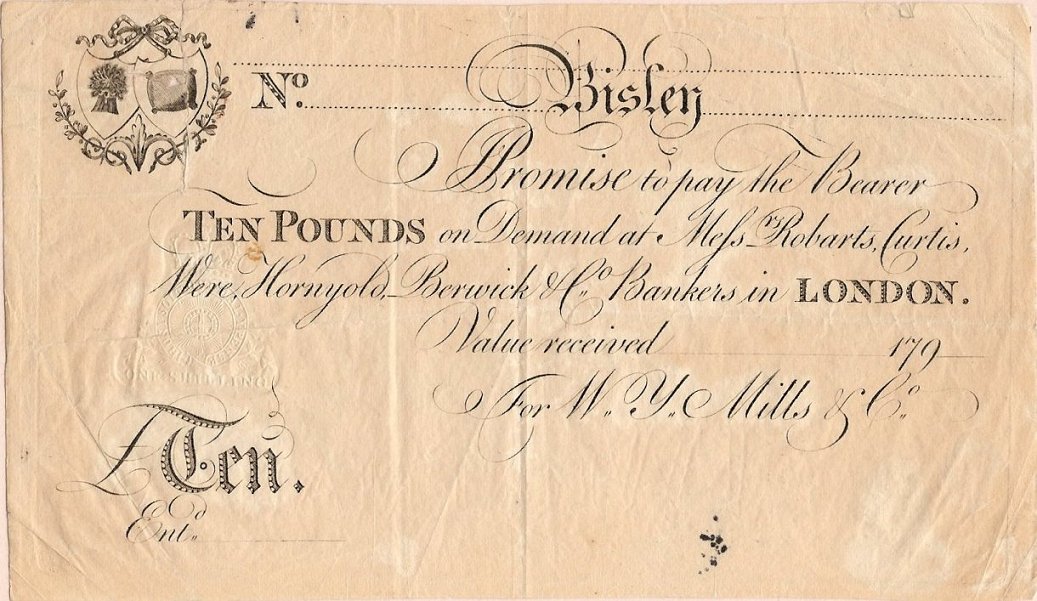 No. Bisley
I Promise to pay the Bearer
TEN POUNDS on Demand at Meſs.rs Robarts, Curtis,
Were, Hornyold, Berwick & Co. Bankers in LONDON.
Value received 179
For W. Y. Mills & Co.
ONE SHILLING
£Ten.
Ent.d